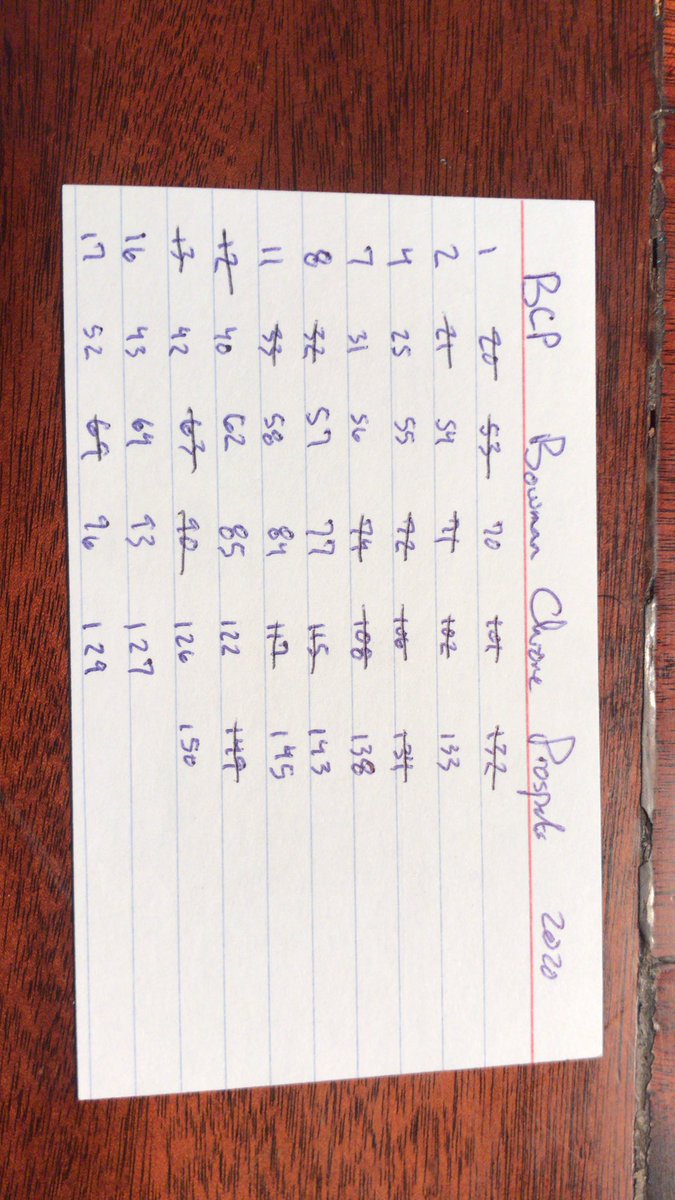 BCP Bowman Chrome Prospects 2020
1 20 53 70 101 132
2 21 54 71 102 133
4 25 55 72 106 134
7 31 56 74 108 138
8 32 57 77 115 143
11 33 58 84 117 145
12 40 62 85 122 149
13 42 63 90 126 150
16 43 64 93 127
17 52 69 96 129